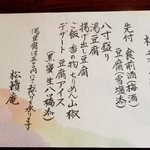 先付 食前酒(梅酒)
豆腐(雪塩添)
八寸盛り
湯豆腐
揚げ出し豆腐
ご飯 香の物 ちりめん山椒
デザート 豆腐アイス
(黒蜜生八つ橋添)
松籟庵